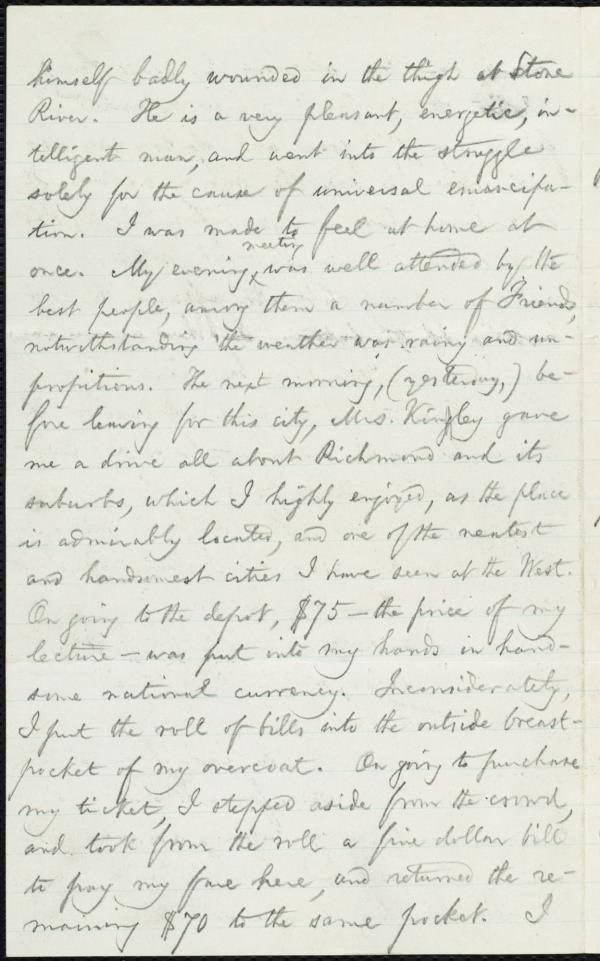 himself badly wounded in the thigh at Stone
River. He is a very pleasant, energetic, in-
telligent man, and went into the struggle
solely for the cause of universal emancipa-
tion. I was made to feel at home at
meeting
once. My evening x was well attended by the
best people, among them a number of Friends,
notwithstanding the weather was rainy and un-
propitious. The next morning, (yesterday,) be-
fore leaving for this city, Mrs. Kingley gave
me a drive all about Richmond and its
suburbs, which I highly enjoyed, as the place
is admirably located, and one of the neatest
and handsomest cities I have seen at the West.
On going to the depot, $75 — the price of my
lecture — was put into my hands in hand-
some national currency. Inconsiderately,
I put the roll of bills into the outside breast-
pocket of my overcoat. On going to purchase
my ticket, I stepped aside from the crowd,
and took from the roll a five dollar bill
to pay my fare here, and returned the re-
maining $70 to the same pocket. I